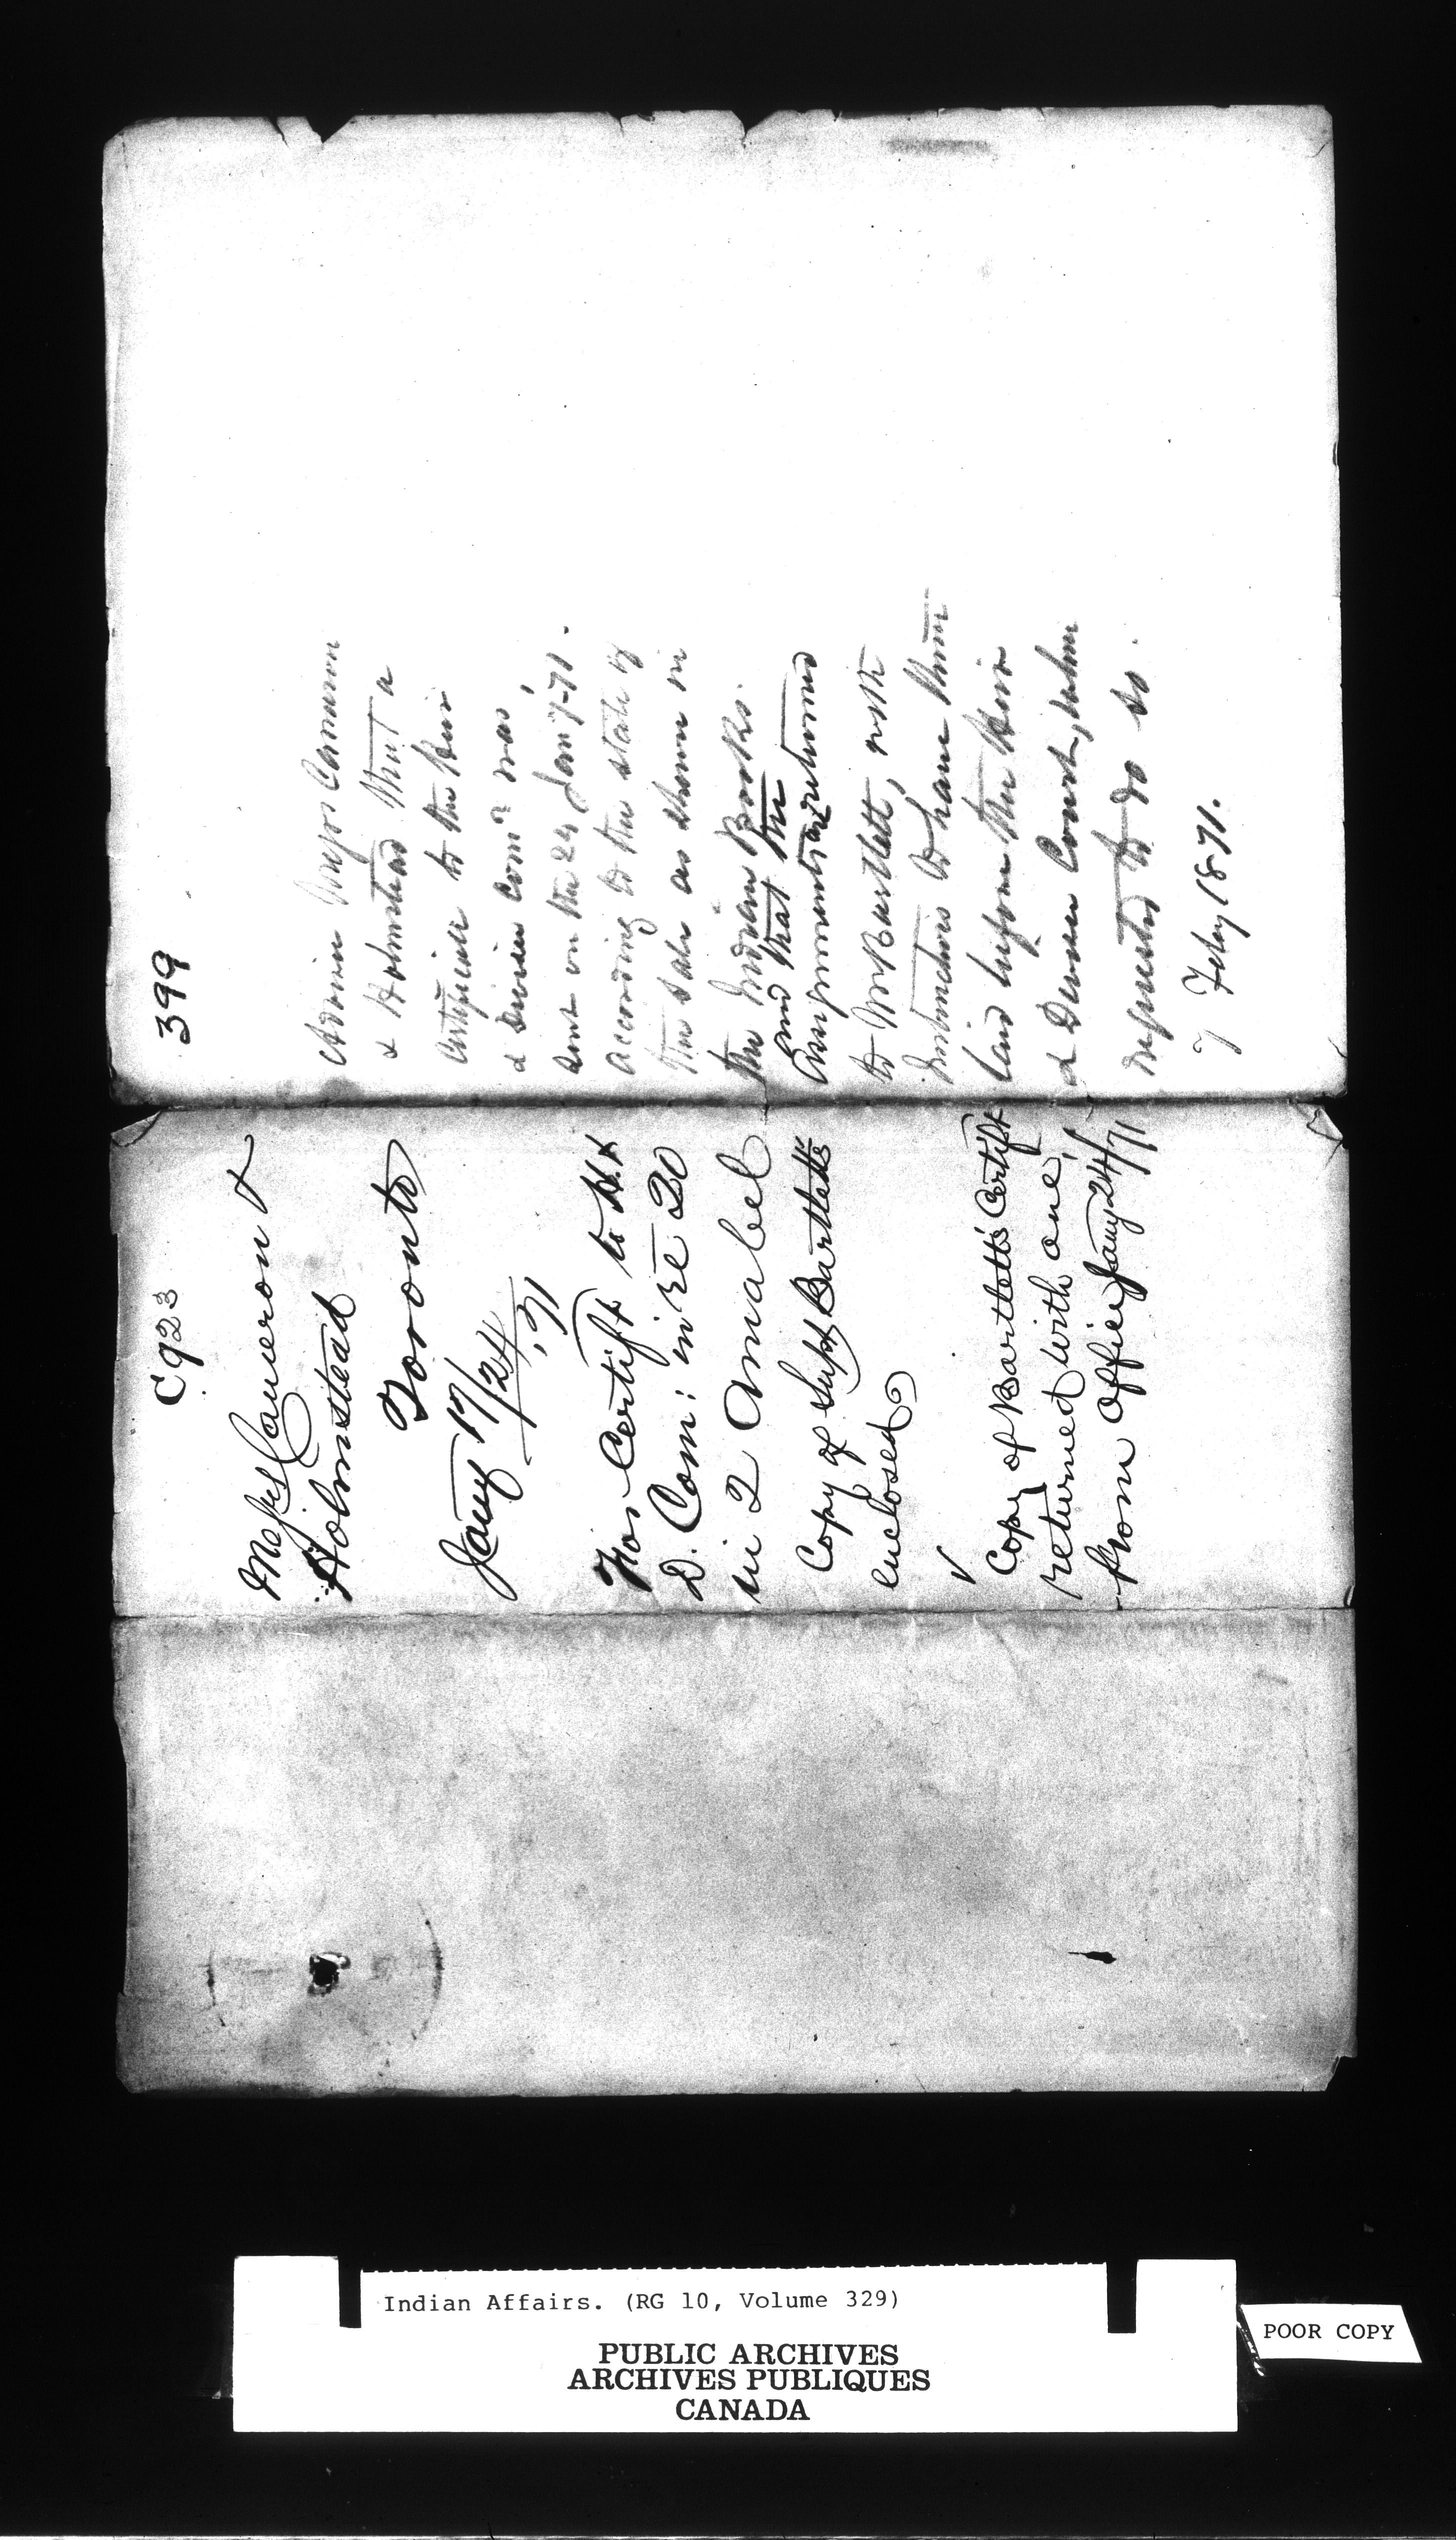 C923
Messrs Cameron &
Holmstead
Toronto
Jany 17/24
'71
For Certift to H. &
D. Com: in re 20
in 2 Amabel
Copy of Supt Bartlett's
enclosed
Copy of Bartlett's Certift
returned with one
from Office Jany 24/71
399
Advise Messrs Cameron
& Holmstead that a
Certificate to the Heir
& Devisee Comn was
sent on the 24 Jany-71.
according to the state of
the sale as shown in
the Indian Books.
and that the
Assignments are returned
to Mr Bartlett, with
instructions to have them
laid before the Heir
& Devisee Court, when
requested to do so.
7 Feby 1871.
Indian Affairs. (RG 10, Volume 329)
PUBLIC ARCHIVES
ARCHIVES PUBLIQUES
CANADA
POOR COPY